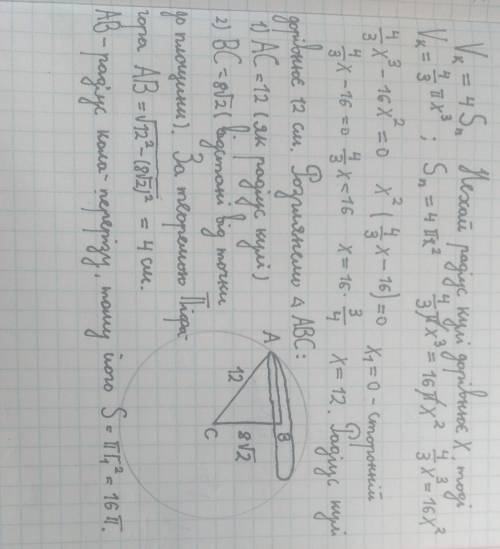 Vк = 4Sп Нехай радіус кулі дорівнює X, тоді
Vк = 4/3 πx³ ; Sп = 4πx² 4/3 πx³ = 16πx² 4/3 x³ = 16x²
4/3 x³ - 16x² = 0 x² (4/3 x - 16) = 0 x₁ = 0 - сторонній
4/3 x - 16 = 0 4/3 x = 16 x = 16 · 3/4 x = 12. Радіус кулі
дорівнює 12 см. Розглянемо △ ABC:
1) AC = 12 (як радіус кулі)
2) BC = 8√2 (відстані від точки
до площини). За теоремою Піфа-
гора AB = √12² - (8√2)² = 4 см.
AB - радіус кола - перерізу, тому його S = πr₁² = 16π.
A
12
B
C
8√2